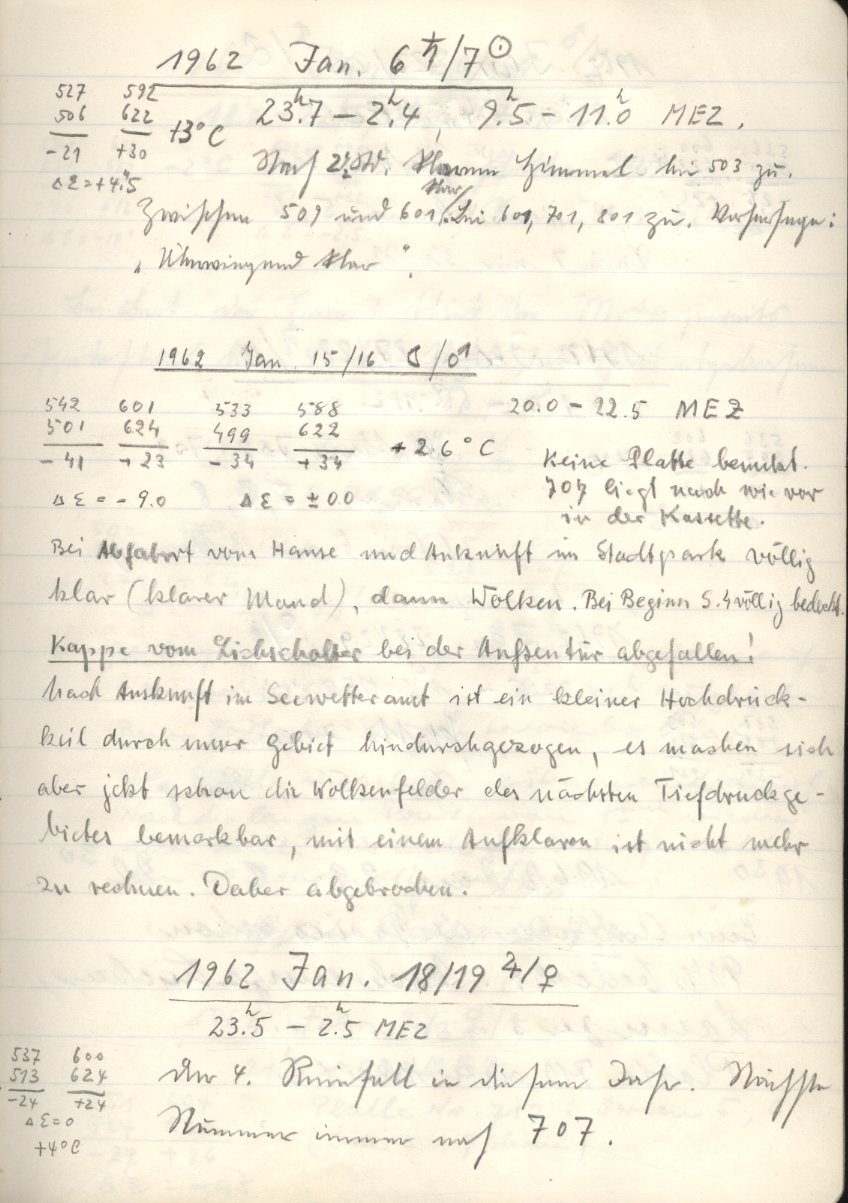 1962 Jan. 6 ♄/7 ☉
527 592
506 622
-21 +30
+3°C
Δε=+4.5
23ʰ.7 – 2ʰ.4, 9ʰ.5 – 11ʰ.0 MEZ.
Nach 2½ St. klarem Himmel bei 503 zu.
Zwischen 509 und 601 klar, bei 601, 701, 801 zu. Vorhersage:
„Überwiegend klar".
1962 Jan. 15/16 ☾/♂
542 601 533 588
501 624 499 622
-41 +23 -34 +34
+2.6°C
Δε = -9.0 Δε = ±0.0
20.0 – 22.5 MEZ
Keine Platte benutzt.
707 liegt nach wie vor
in der Kassette.
Bei Abfahrt vom Hause und Ankunft im Stadtpark völlig
klar (klarer Mond), dann Wolken. Bei Beginn 5.4 völlig bedeckt.
Kappe vom Lichschalter bei der Aussentür abgefallen!
Nach Auskunft im Seewetteramt ist ein kleiner Hochdruck-
keil durch unser Gebiet hindurchgezogen, es machen sich
aber jetzt schon die Wolkenfelder des nächsten Tiefdruckge-
bietes bemerkbar, mit einem Aufklaren ist nicht mehr
zu rechnen. Daher abgebrochen.
1962 Jan. 18/19 ♃/♀
23ʰ.5 – 2ʰ.5 MEZ
537 600
513 624
-24 +24
Δε=0
+4°C
Der 4. Reinfall in diesem Jahr. Nächste
Nummer immer noch 707.